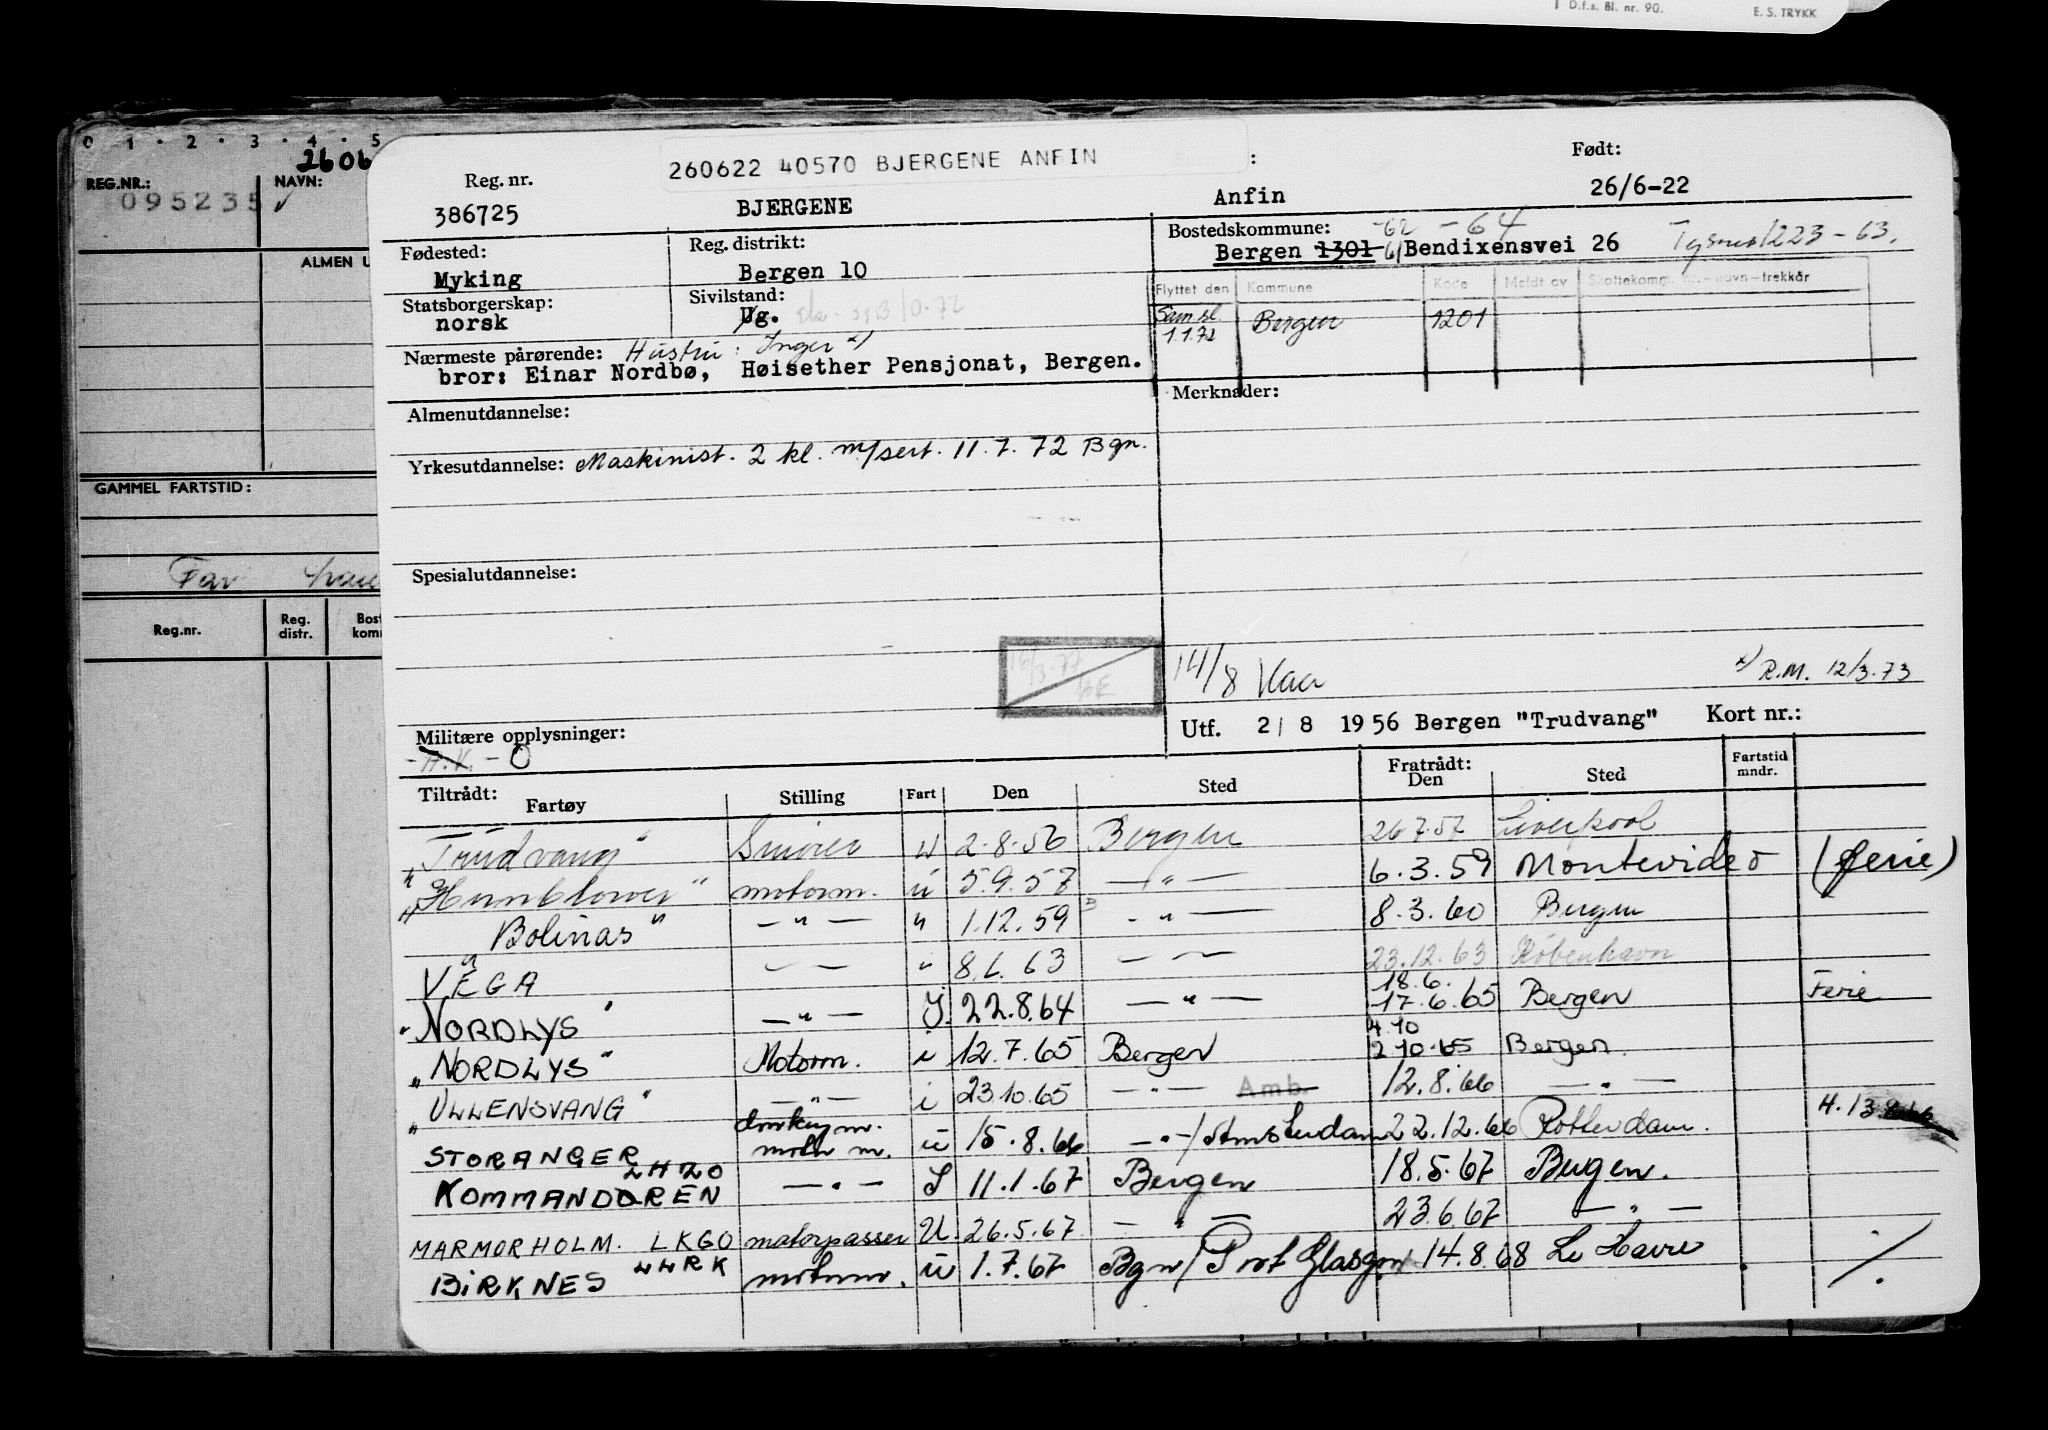 D.f.s. Bl. nr. 90. E. S. TRYKK
0 · 1 · 2 · 3 · 4 · 5
2606
REG.NR.: NAVN:
095235 ✓
ALMEN U
GAMMEL FARTSTID:
Reg.nr. Reg. distr. Bost komm
260622 40570 BJERGENE ANFIN :
Reg. nr. Født:
386725 BJERGENE Anfin 26/6-22
Fødested: Reg. distrikt: Bostedskommune: -62 -64
Myking Bergen 10 Bergen 1301 61 Bendixensvei 26 Tysnes 1223-63.
Statsborgerskap: Sivilstand: Flyttet den Kommune Kode Meldt av
norsk Ug. Sam.sl. 1.1.72 Bergen 1201
Nærmeste pårørende: Hustru: Inger x)
bror: Einar Nordbø, Høisether Pensjonat, Bergen.
Almenutdannelse: Merknader:
Yrkesutdannelse: Maskinist. 2 kl. m/sert. 11.7.72 Bgn.
Spesialutdannelse:
16/3-77
14/8 Kaa x) R.M. 12/3.73
Militære opplysninger: Utf. 2/ 8 1956 Bergen "Trudvang" Kort nr.:
-H.V.- 0
Tiltrådt: Fartøy Stilling Fart Den Sted Fratrådt: Den Sted Fartstid mndr.
"Trudvang" Smører U 2.8.56 Bergen 26.7.57 Liverpool
motorm. u 5.9.57 — " — 6.3.59 Montevideo (ferie)
"Bolinas" — " — " 1.12.59 — " — 8.3.60 Bergen
"VEGA — — " 8.6.63 — " — 23.12.63 København
"NORDLYS" — " — I. 22.8.64 — " — 18.6. 17.6.65 Bergen Ferie
"NORDLYS" Motorm. i 12.7.65 Bergen 4.10 2.10.65 Bergen.
"ULLENSVANG" — " — i 23.10.65 — " — Amb. 12.8.66 — " —
STORANGER donkeym. motorm. u 15.8.66 — " —/Amsterdam 22.12.66 Rotterdam. H.13.8.66
KOMMANDØREN LHZO — " — I 11.1.67 Bergen 18.5.67 Bergen.
MARMORHOLM. LKGO motorpasser U. 26.5.67. — " — 23.6.67 — " —
BIRKNES LLRK motorm. u 1.7.67 Bgn/Port Glasgow 14.8.68 Le Havre ./.